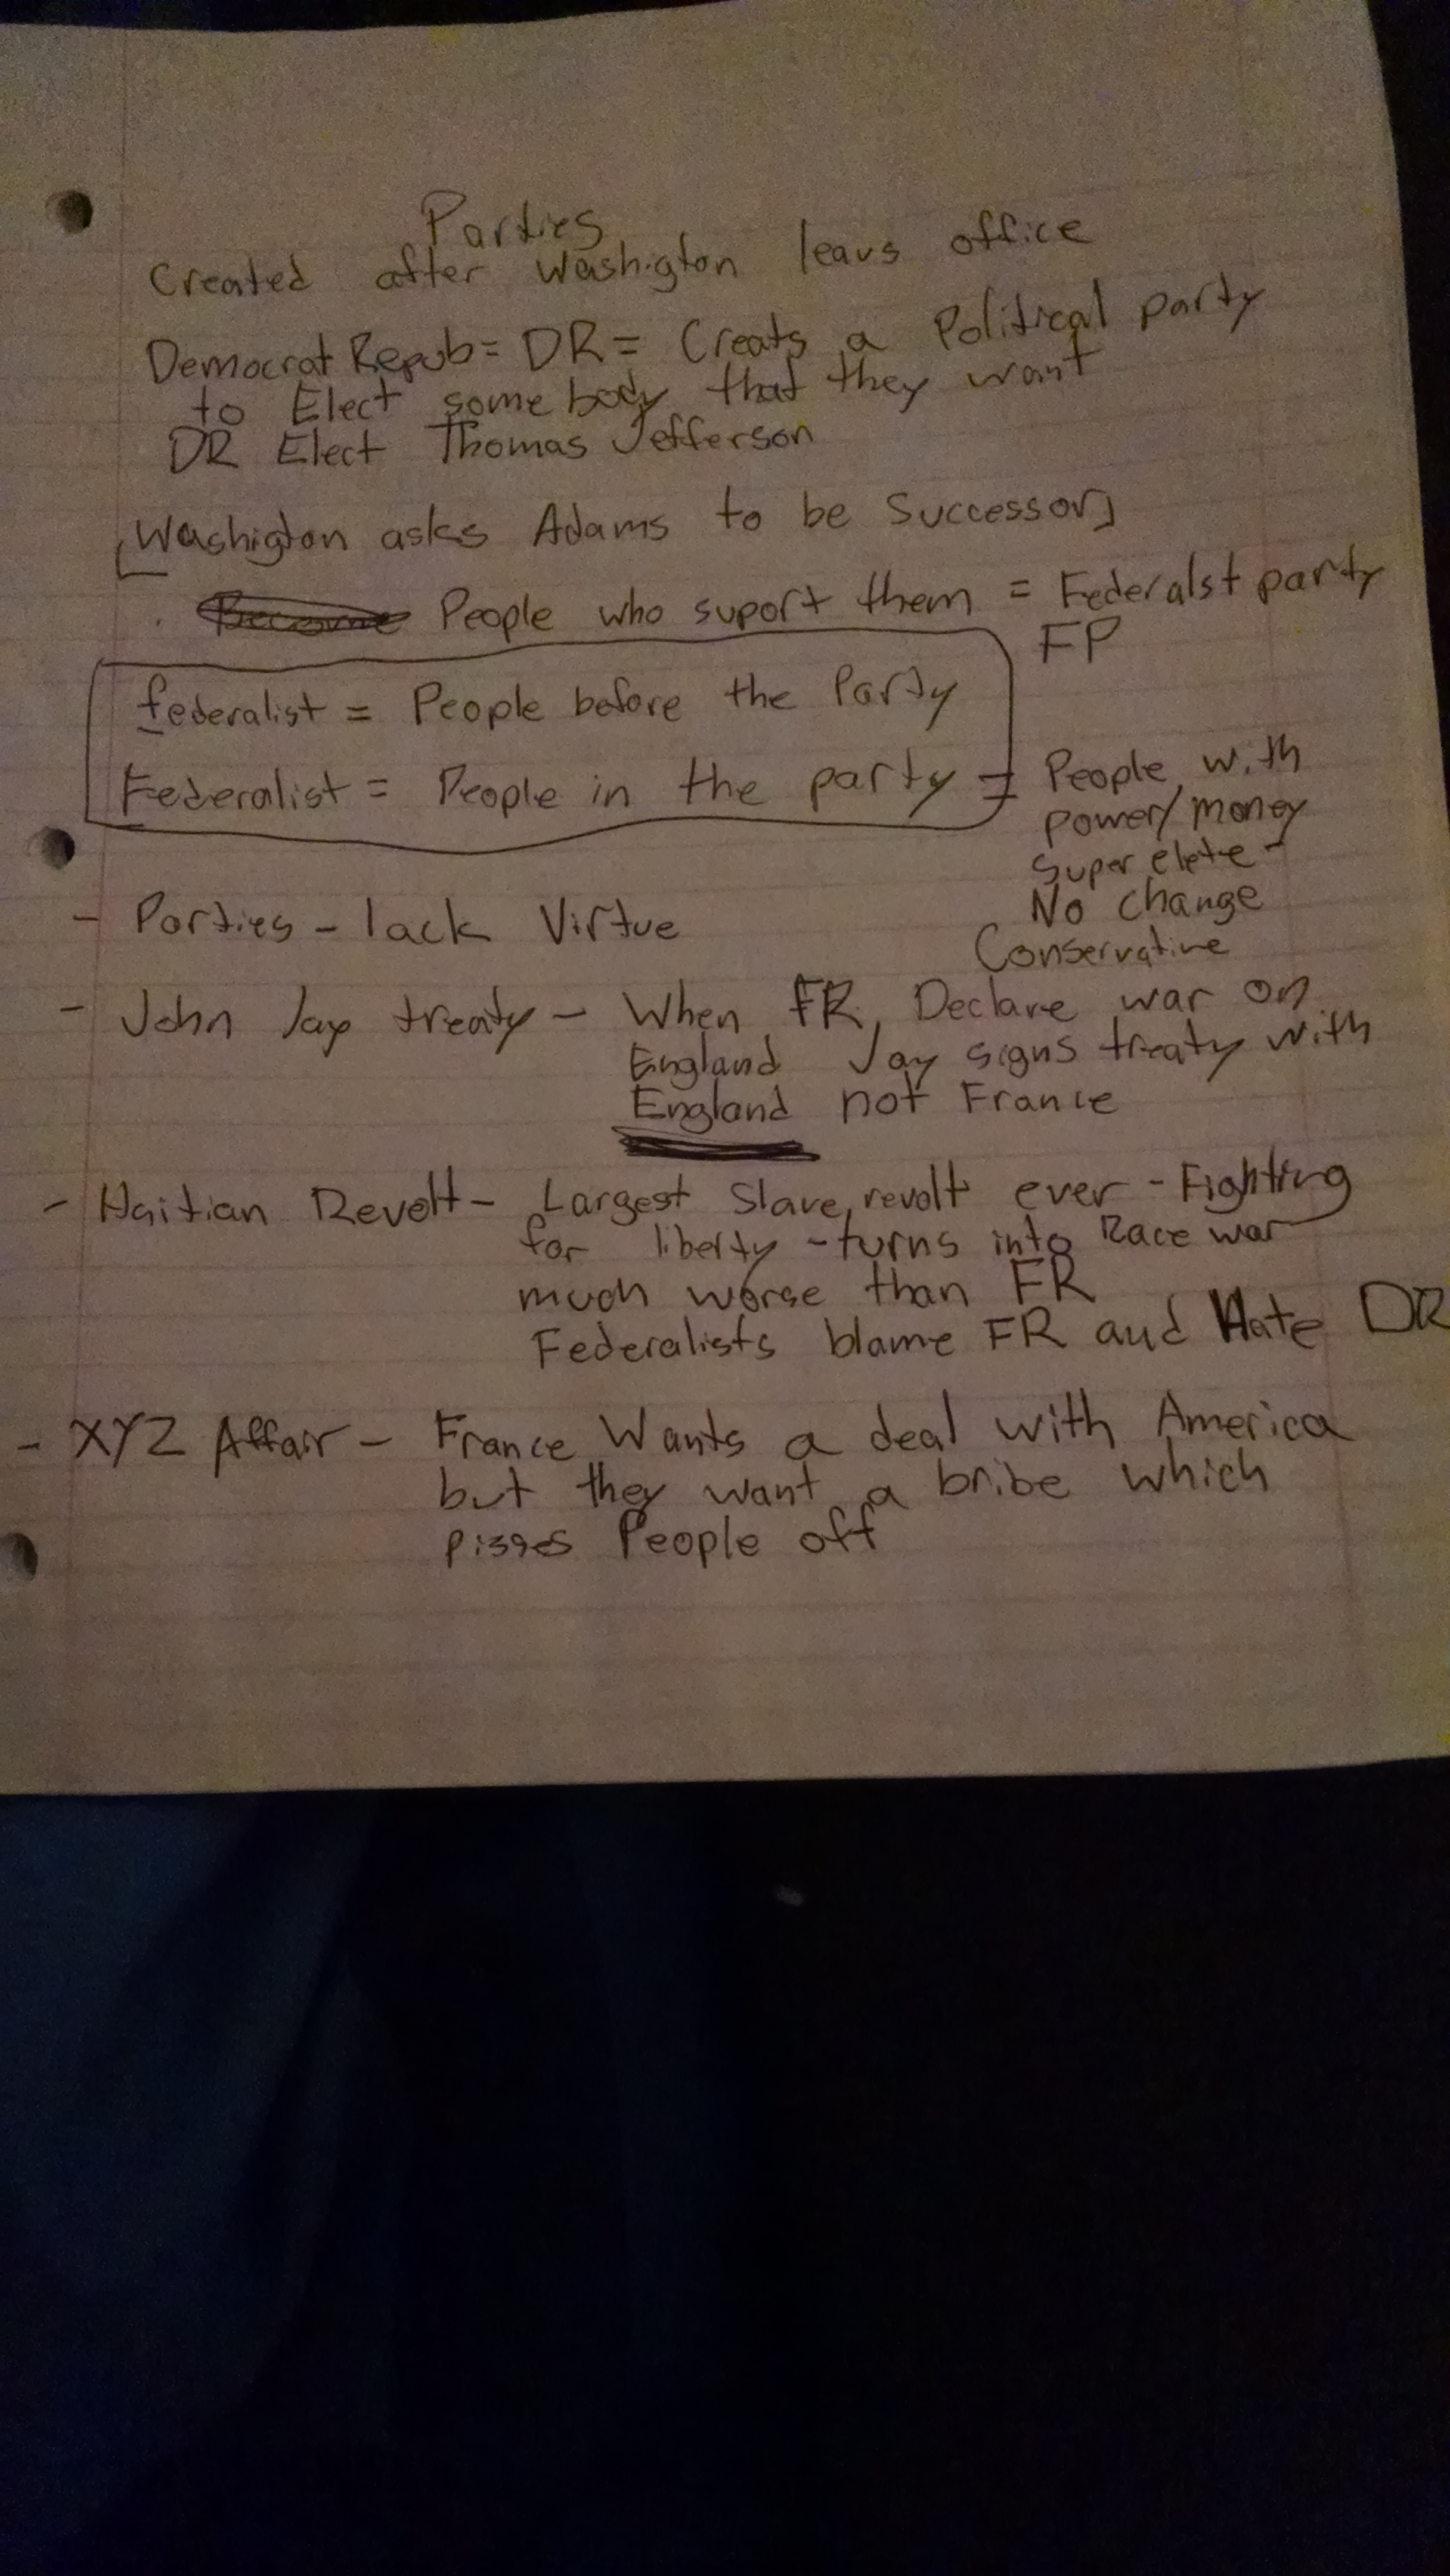 Parties
Created after Washigton leavs office
Democrat Repub = DR = Creats a Political party
to Elect some body that they want
DR Elect Thomas Jefferson
[Washigton asks Adams to be Successor]
Become People who suport them = Federalst party
FP
federalist = People before the Party
Federalist = People in the party = People with
power/money
super elete -
No change
Conservative
- Parties - lack Virtue
- John Jay treaty - When FR, Declare war on
England Jay signs treaty with
England not France
- Haitian Revolt - Largest Slave revolt ever - Fighting
for liberty - turns into Race war
much worse than FR
Federalists blame FR and Hate DR
- XYZ Affair - France Wants a deal with America
but they want a bribe which
pisses People off